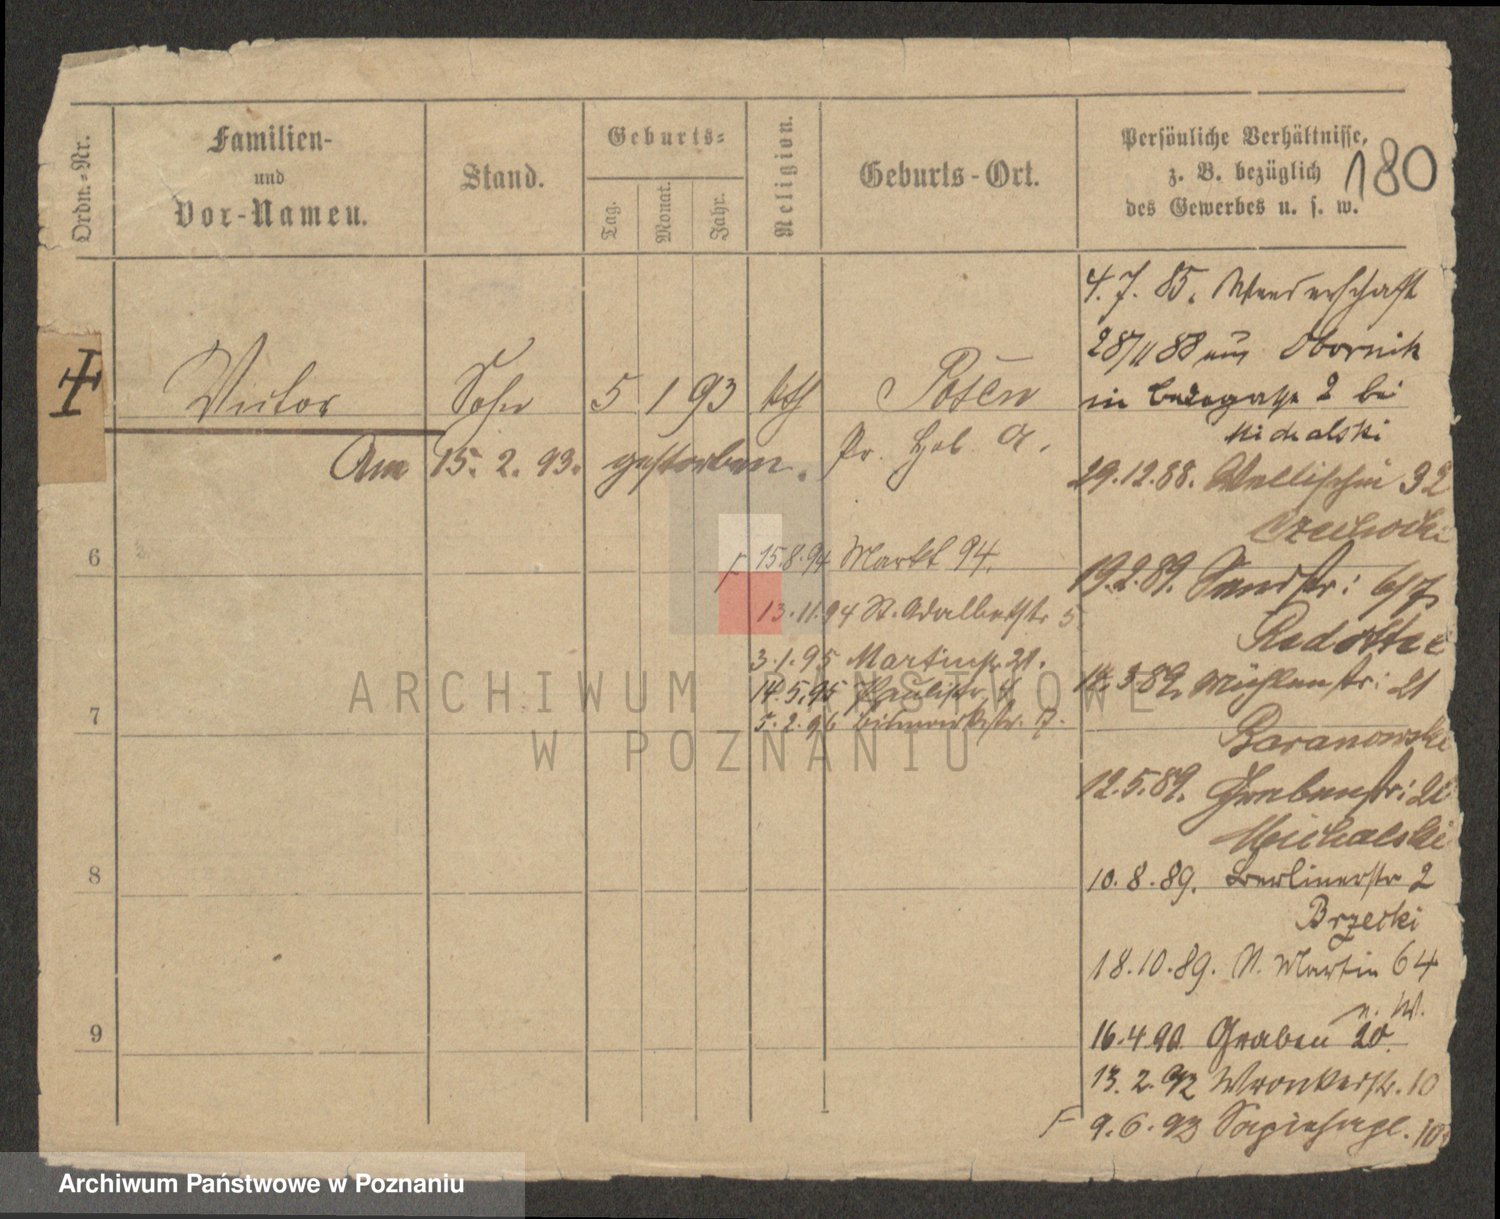 Ordn.-Nr.
Familien-
und
Vor-Namen.
Stand.
Geburts-
Tag.
Monat.
Jahr.
Religion.
Geburts-Ort.
Persönliche Verhältnisse,
z. B. bezüglich
des Gewerbes u. s. w.
180
Victor Sohn 5 1 93 kth Posen
Am 15. 2. 93. gestorben. Pr.
6
7
8
9
15.8.94 Markt 94.
13.11.94 St. Adalbertstr 5.
3.1.95 Martinstr 21.
14.5.95 Paulistr
5.2.96 Bismarckstr. 7.
4. 7. 85.
28/11 88 aus Obornik
in 2 bei
Michalski
29.12.88. Wallischei 32
Czechocki
19.2.89. Sandstr: 6/7
Radottke
3.89. Mühlenstr: 21
Baranowski
12.5.89. Grabenstr: 21
Michalski
10. 8. 89. Berlinerstr 2
Brzeski
18.10.89. St. Martin 64
n. W.
16.4.90 Graben 20.
13. 2. 92 Wronkerstr. 10
F 9. 6. 93 Sapiehapl. 10
ARCHIWUM PAŃSTWOWE
W POZNANIU
Archiwum Państwowe w Poznaniu